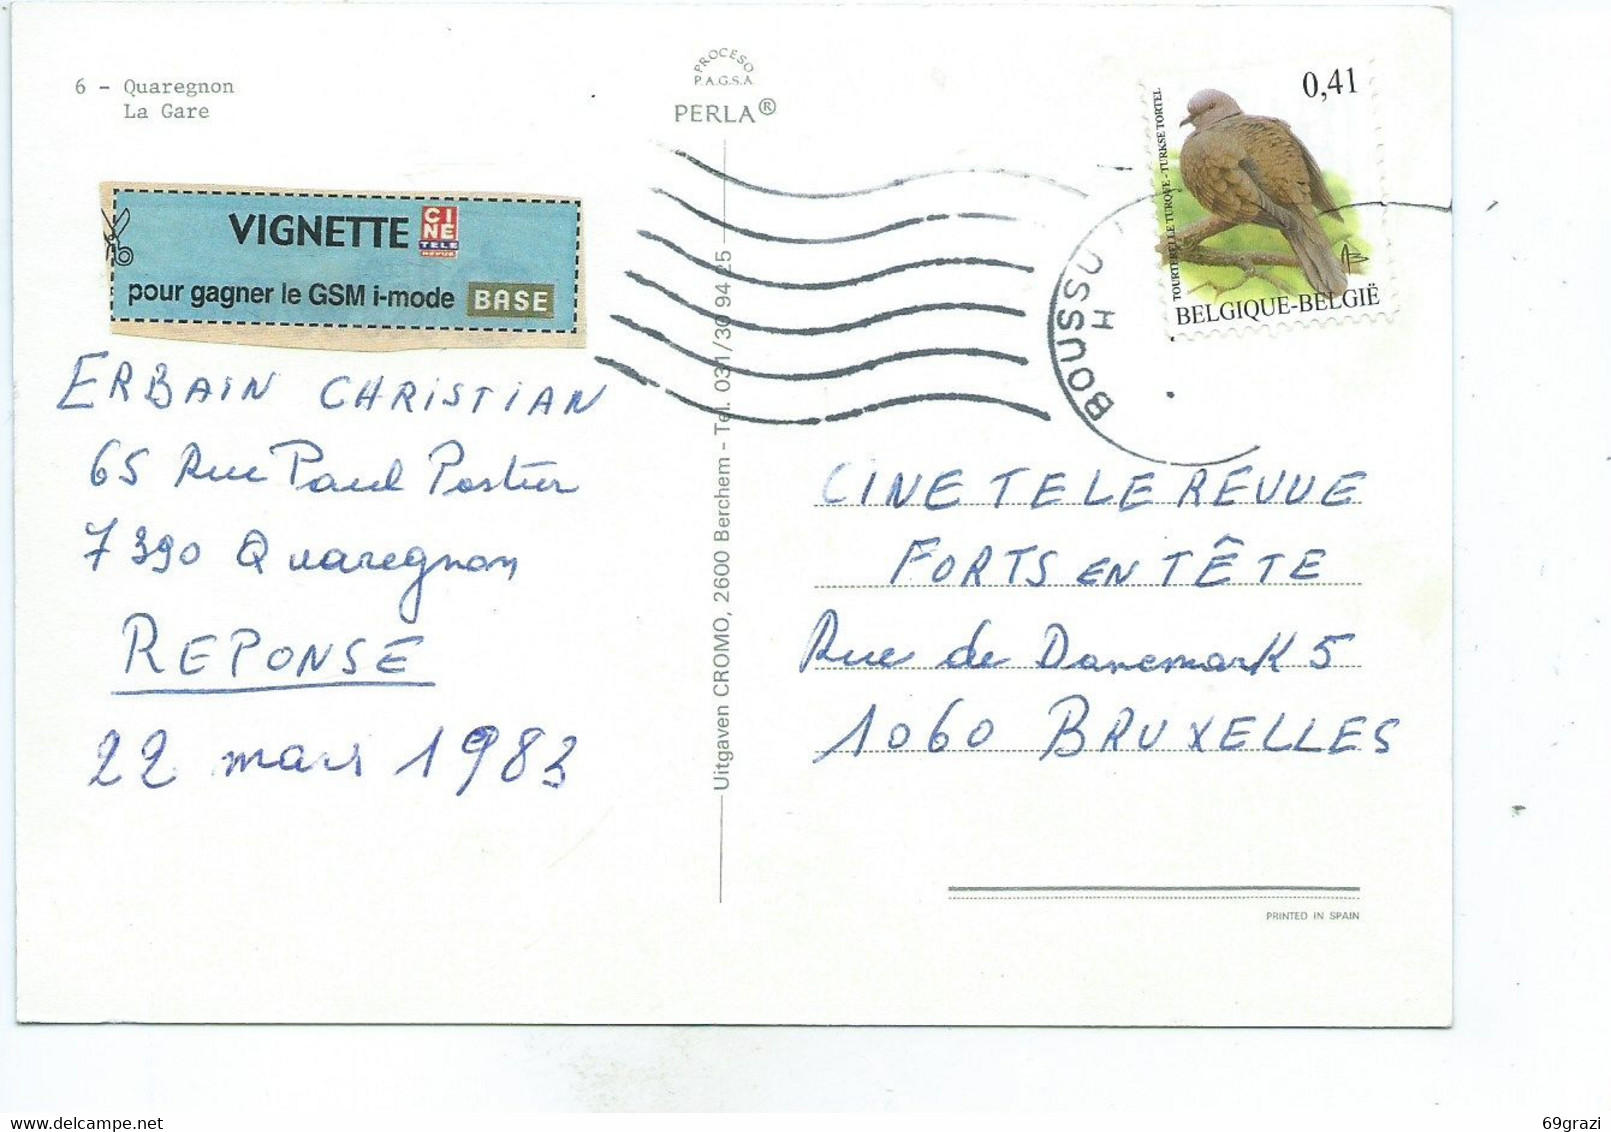 6 - Quaregnon
La Gare
PROCESO
P.A.G.S.A.
PERLA®
VIGNETTE CINE TELE REVUE
pour gagner le GSM i-mode BASE
ERBAIN CHRISTIAN
65 Rue Paul Pastur
7390 Quaregnon
REPONSE
22 mars 1983
Uitgaven CROMO, 2600 Berchem - Tel. 031/30 94 25
BOUSSU
H
0,41
TOURTERELLE TURQUE - TURKSE TORTEL
BELGIQUE-BELGIË
CINE TELE REVUE
FORTS EN TÊTE
Rue de Danemark 5
1060 BRUXELLES
PRINTED IN SPAIN
69grazi